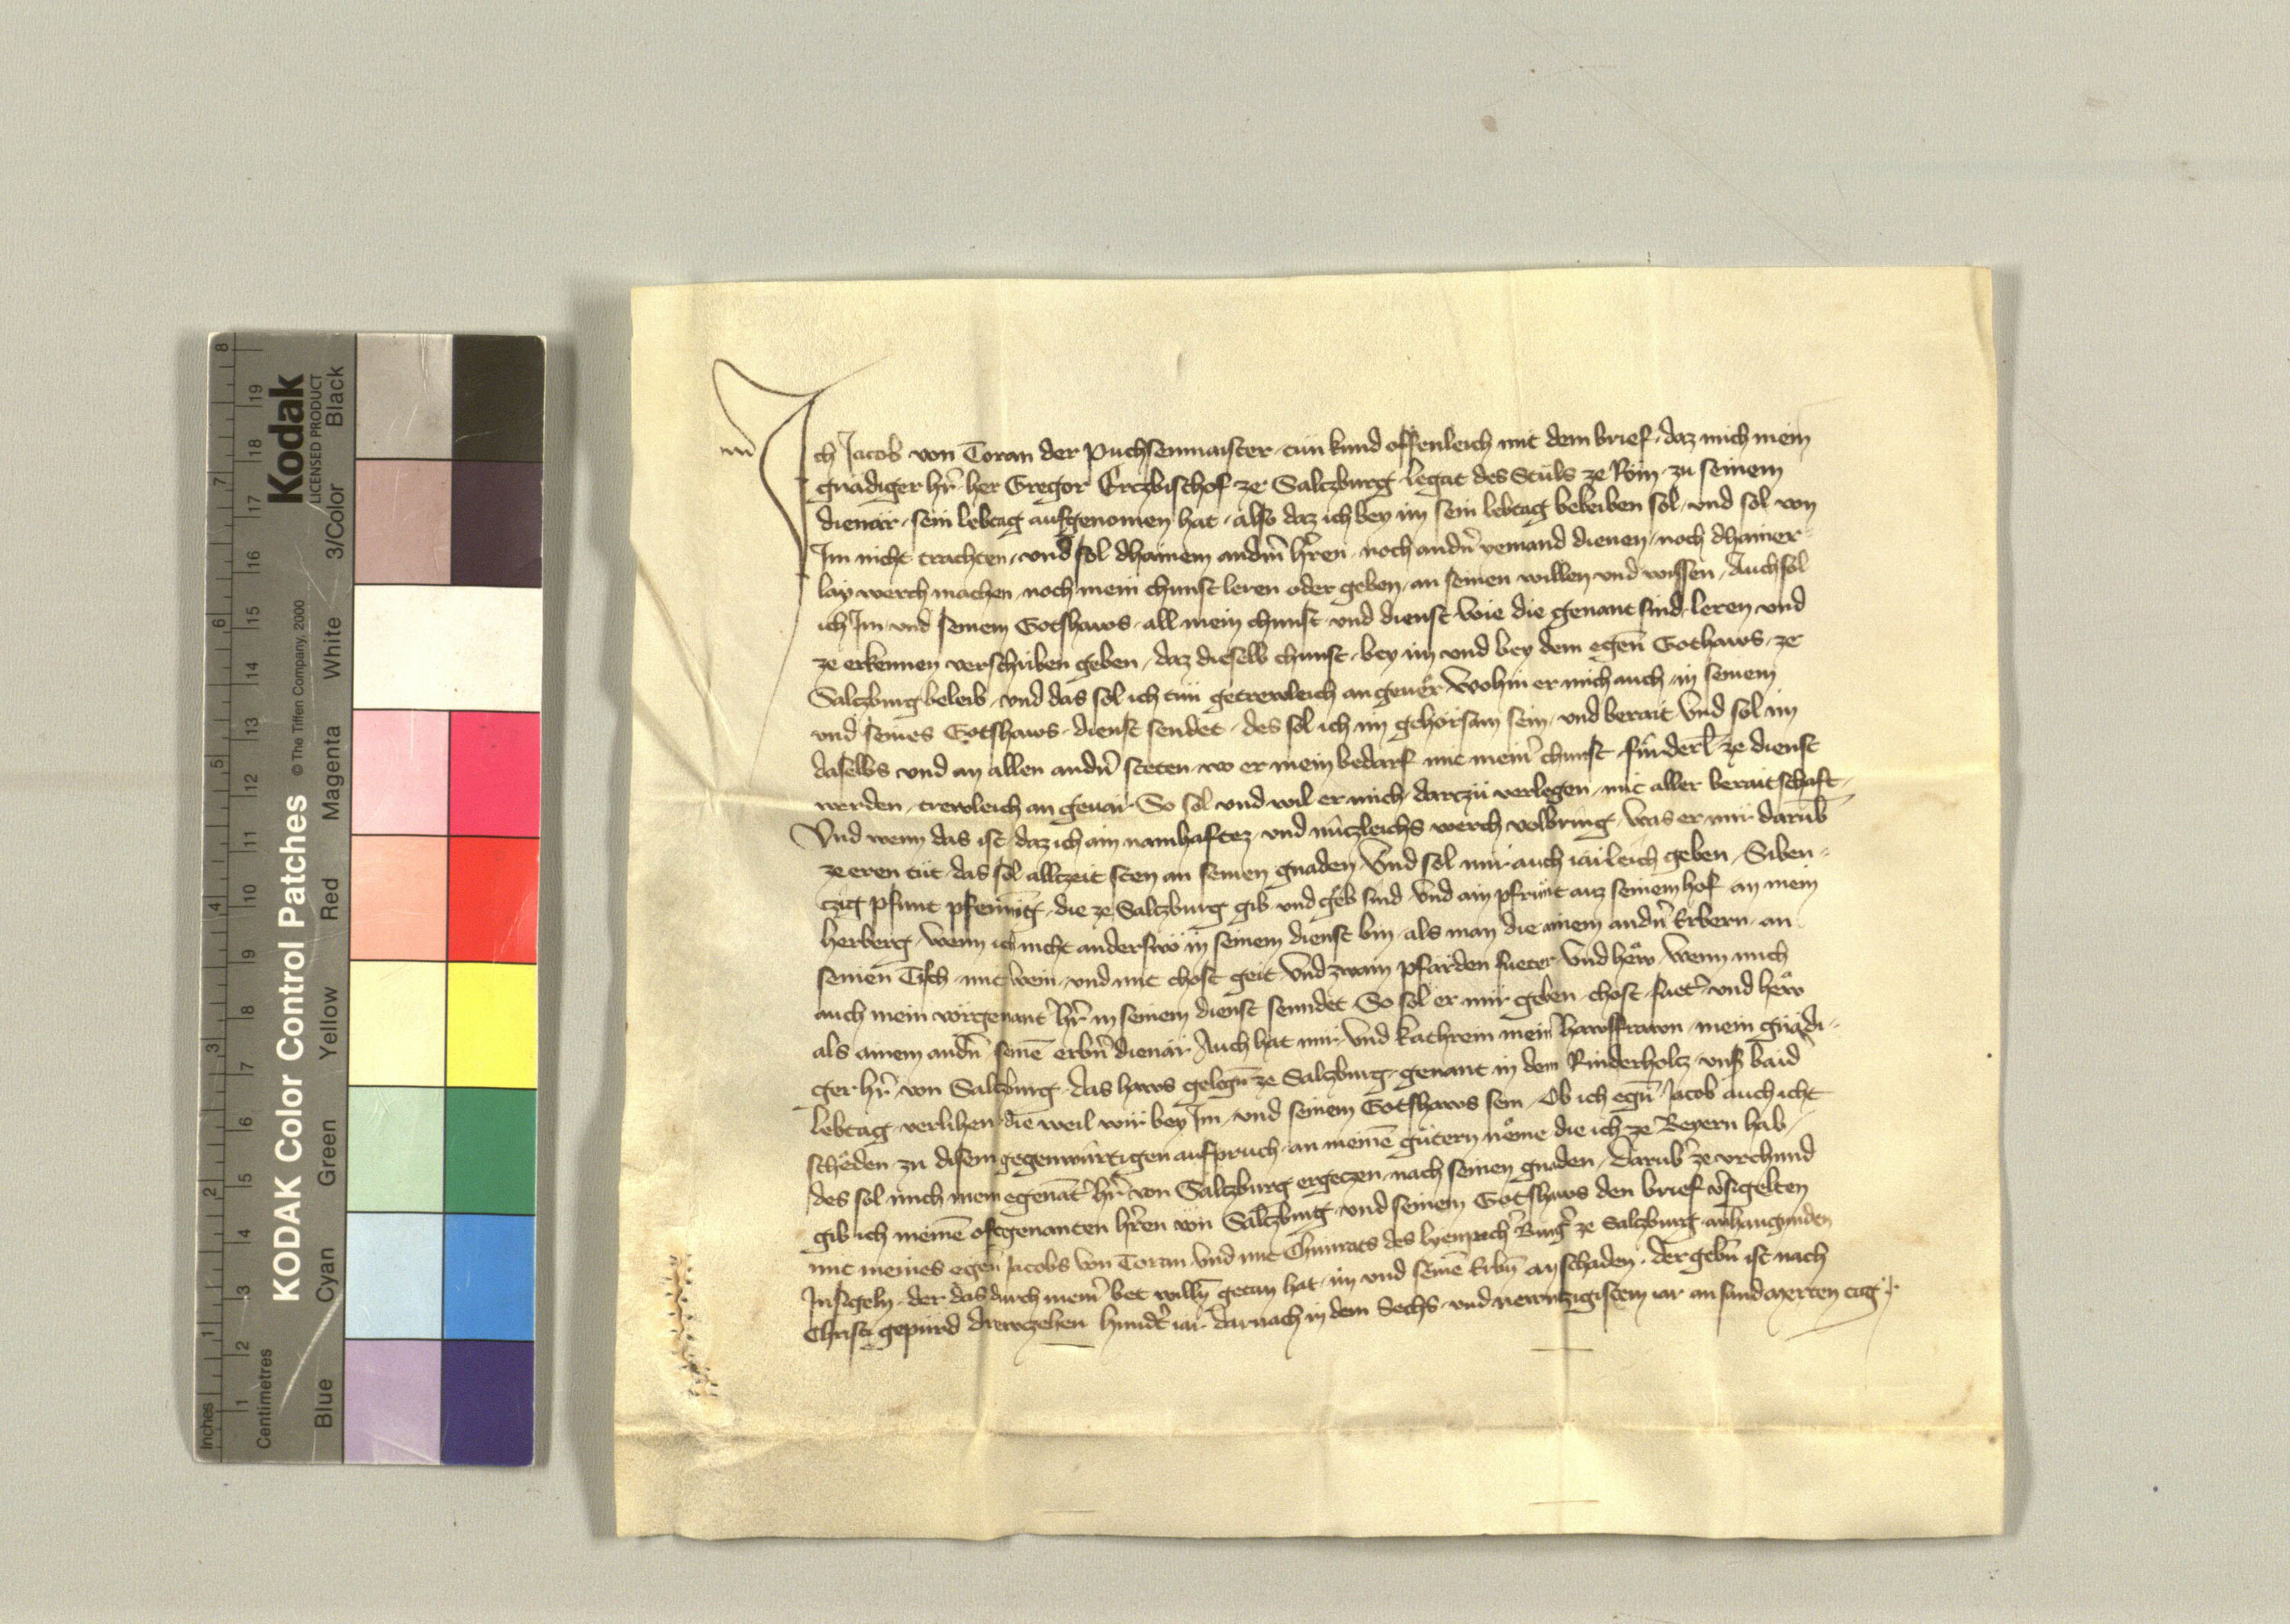 Ich Jacob von Toran der Puchsenmaister tun kund offenleich mit dem brief, daz mich mein
gnädiger hr̄ her Gregor Ertzbischof ze Saltzburg Legat des Stuls ze Rom zu seinem
dienär, sein lebtag aufgenomen hat, also daz ich bey im sein lebtag beleiben sol, und sol von
Im nicht trachten, und sol dhainem andm̄ hr̄ren, noch andn̄ yemand dienen, noch dhainer-
lay werch machen, noch mein chunst leren oder geben, an seinen willen und wissen, Auch sol
ich Im, und seinem Gotshaws, all mein chunst, und dienst wie die genant sind, leren und
ze erkennen verschriben geben, daz dieselb chunst, bey im und bey dem egen̄ Gothaws, ze
Saltzburg beleib, und das sol ich tun getrewleich an geuer, Wohin er mich auch, in seinem
und seines Gotshaws, dienst sendet, des sol ich im gehorsam sein, und berait Und sol im
daselbs und an allen andn̄ steten, wo er mein bedarf mit mein̄ chunst fůderl̄ ze dienst
werden, trewleich an geuär So sol und wil er mich, dartzu verlegen, mit aller beraitschaft,
Und wenn das ist, daz ich ain namhaftez, und nützleichs werch volbring, was er mir darub̄
ze eren tut, das sol alltzeit sten an seinen gnaden, Und sol mir auch iärleich geben, Siben-
tzig pfunt pfenning, die ze Saltzburg gib und geb sind Und ain pfrünt auz seinem hof an mein
herberg, wenn ich nicht anderswo in seinem dienst bin, als man die ainem andn̄ Erbern, an
seinen Tisch, mit wein, und mit chost geit Und zwain pfärden fueter Und hew, Wenn mich
auch mein vorgenant hr̄ in seinem dienst senndet So sol er mir geben, chost, fuet̄, und hew
als ainem andn̄ seinē erbn̄ dienär Auch hat mir und Kathrein mein̄ hawsfrawn, mein gnädi-
ger hr̄ von Saltzburg, das haws gelegn̄ ze Saltzburg, genant in dem Rinderholtz, uns baid
lebtag, verlihen die weil wir bey Im, und seinem Gotshaws sein, Ob ich egn̄ Jacob auch icht
scheden, zu disem gegenwürtigen aufpruch, an meinē gütern näme die ich ze Beyern hab,
des sol mich mein egenāt hr̄ von Saltzburg ergetzen, nach seinen gnaden, Darub̄ ze urchund
gib ich meinē oftgenanten hr̄ren von Saltzburg, und seinem Gotshaws den brief v̄sigelten
mit meines egen̄ Jacobs von Toran und mit Chunrats des Burḡ ze Saltzburg anhangunden
Insigeln, der das durch mein̄ bet willn̄ getan hat, im und seinē Erbn̄ an schaden, Der gebn̄ ist nach
Christi gepurd drewzehen hundt̄ iar, darnach in dem Sechs, und newntzigistem iar an sand Merten tag